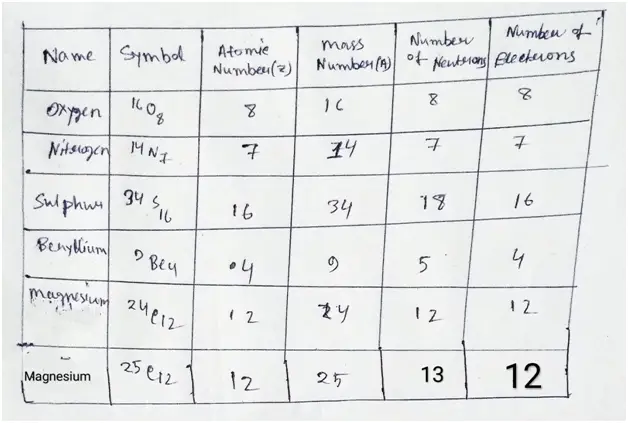 Name Symbol Atomic Number(Z) Mass Number(A) Number of Neutrons Number of Electrons
Oxygen 16O8 8 16 8 8
Nitrogen 14N7 7 14 7 7
Sulphur 34S16 16 34 18 16
Beryllium 9Be4 4 9 5 4
Magnesium 24e12 12 24 12 12
Magnesium 25e12 12 25 13 12